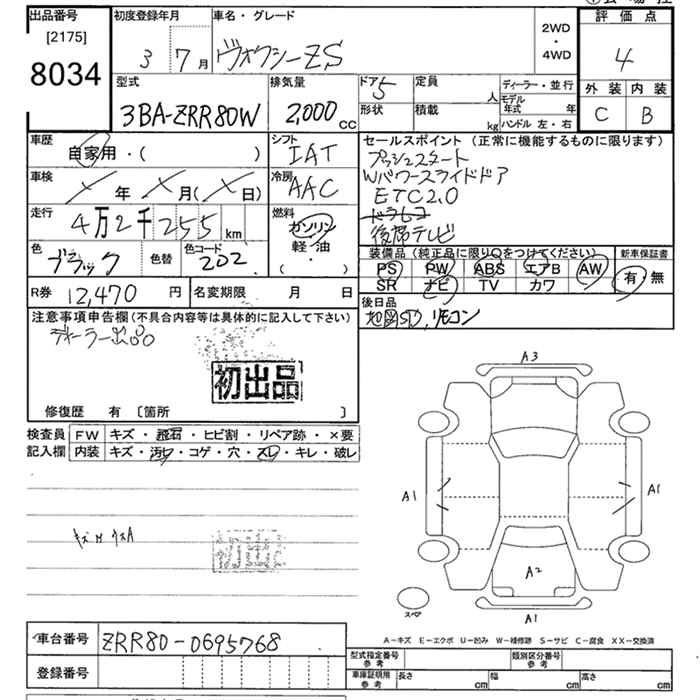 出品番号 [2175] 8034
初度登録年月 3 7月
車名・グレード ヴォクシーZS
2WD・4WD
評価点 4
外装 内装
C B
型式 3BA-ZRR80W
排気量 2,000cc
ドア 5
形状
定員 人
積載 kg
ディーラー・並行
モデル年式 年
ハンドル 左・右
車歴 自家用・( )
シフト IAT
セールスポイント (正常に機能するものに限ります)
プッシュスタート
Wパワースライドドア
ETC2.0
後席テレビ
車検 年 月( 日)
冷房 AAC
走行 4万2千255km
燃料 ガソリン 軽・油・( )
色 ブラック 色替 色コード 202
装備品(純正品に限り○をつけてください)
PS PW ABS エアB AW
SR ナビ TV カワ
新車保証書 有 無
R券 12,470円 名変期限 月 日
後日品
地図SD,リモコン
注意事項申告欄(不具合内容等は具体的に記入して下さい)
ディーラー出品
初出品
修復歴 有 [箇所 ]
検査員記入欄
FW キズ・飛石・ヒビ割・リペア跡・×要
内装 キズ・汚レ・コゲ・穴・スレ・キレ・破レ
初出品
A3
A1
A1
A2
A1
スペア
A-キズ E-エクボ U-凹み W-補修跡 S-サビ C-腐食 XX-交換済
車台番号 ZRR80-0695768
登録番号
型式指定番号 参考
類別区分番号 参考
車庫証明用 参考 長さ cm 幅 cm 高さ cm